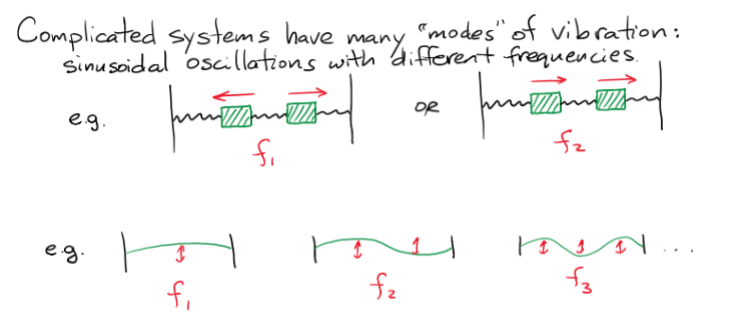 Complicated systems have many "modes" of vibration:
sinusoidal oscillations with different frequencies.
e.g. OR
f₁ f₂
e.g. ...
f₁ f₂ f₃